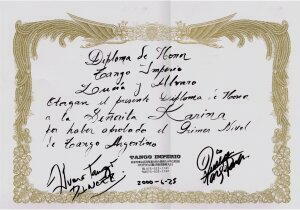 Diploma de Honor
Tango Imperio
Lucía y Alvaro
Otorgan el presente Diploma de Honor
a la Señorita Karina
por haber aprobado el Primer Nivel
de Tango Argentino
TANGO IMPERIO
2000-6-25